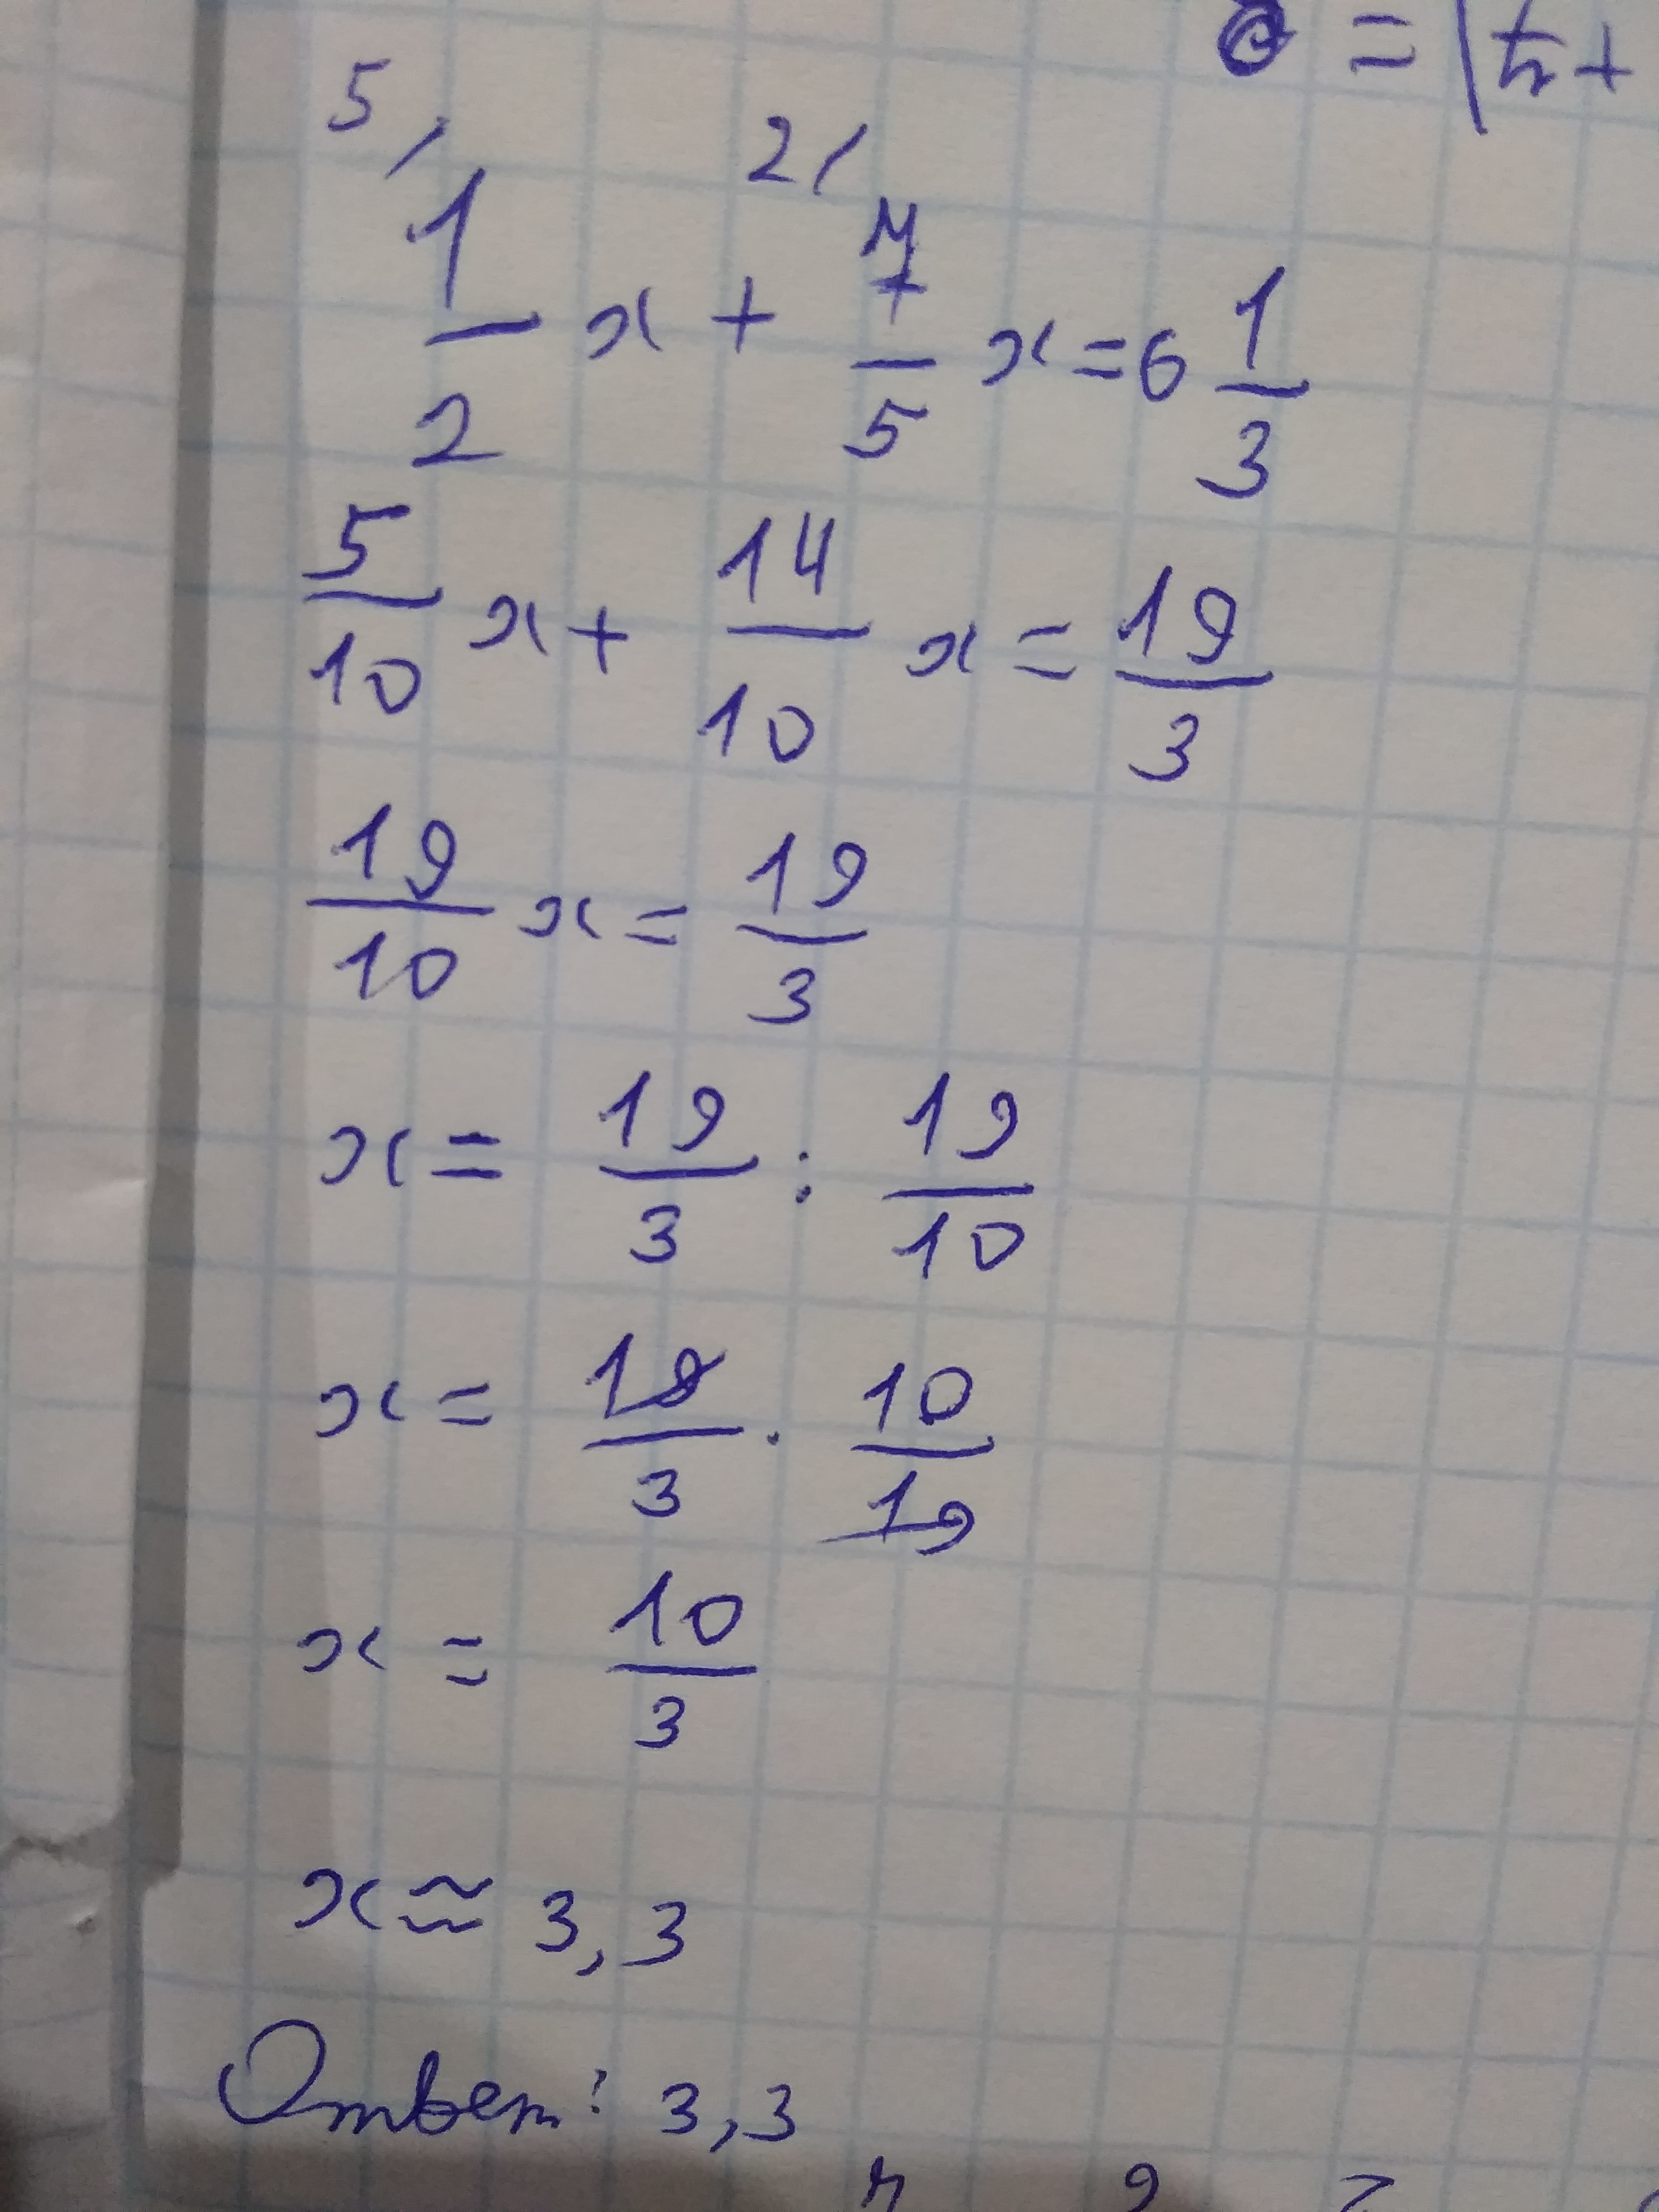 5/ 1/2 x + 2/ 7/5 x = 6 1/3
5/10 x + 14/10 x = 19/3
19/10 x = 19/3
x = 19/3 : 19/10
x = 19/3 · 10/19
x = 10/3
x ≈ 3,3
Ответ: 3,3